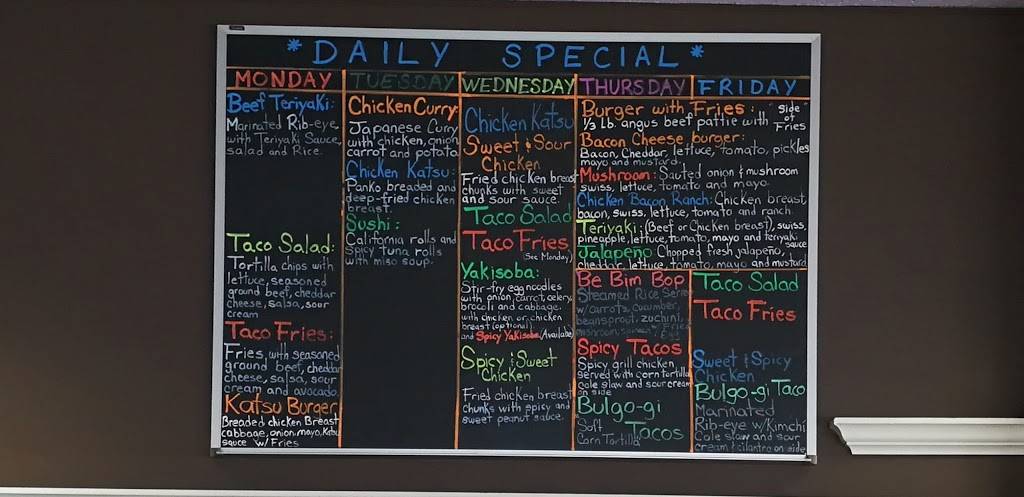 *DAILY SPECIAL*
MONDAY
Beef Teriyaki:
Marinated Rib-eye,
with Teriyaki Sauce,
salad and Rice.
Taco Salad:
Tortilla chips with
lettuce, seasoned
ground beef, cheddar
cheese, salsa, sour
cream
Taco Fries:
Fries, with seasoned
ground beef, cheddar
cheese, salsa, sour
cream and avocado.
Katsu Burger
Breaded chicken Breast
cabbage, onion, mayo, Katsu
sauce w/ Fries
TUESDAY
Chicken Curry:
Japanese Curry
with chicken, onion,
carrot and potato.
Chicken Katsu:
Panko breaded and
deep-fried chicken
breast.
Sushi:
California rolls and
Spicy tuna rolls
with miso soup.
WEDNESDAY
Chicken Katsu
Sweet & Sour
Chicken
Fried chicken breast
chunks with sweet
and sour sauce.
Taco Salad
Taco Fries
(See Monday)
Yakisoba:
Stir-fry egg noodles
with onion, carrot, celery,
brocoli and cabbage.
with chicken or chicken
breast (optional).
and Spicy Yakisoba (Available)
Spicy & Sweet
Chicken
Fried chicken breast
chunks with spicy and
sweet peanut sauce.
THURSDAY
FRIDAY
Burger with Fries: "Side
1/3 Lb. angus beef pattie with of
Fries
Bacon Cheese burger:
Bacon, Cheddar, lettuce, tomato, pickles
mayo and mustard.
Mushroom: Sauted onion & mushroom
swiss, lettuce, tomato and mayo
Chicken Bacon Ranch: Chicken breast,
bacon, swiss, lettuce, tomato and ranch.
Teriyaki: (Beef or Chicken breast), swiss,
pineapple, lettuce, tomato, mayo and teriyaki
sauce
Jalapeño: Chopped fresh jalapeño,
cheddar, lettuce, tomato, mayo and mustard
Be Bim Bop
Steamed Rice Serve
w/ carrots, cucumber,
beansprout, zuchini,
mushroom, Fried
Egg
Spicy Tacos
Spicy grill chicken
served with corn tortilla
cole slaw and sour cream
on side
Bulgo-gi
Soft Tacos
Corn Tortilla
Taco Salad
Taco Fries
Sweet & Spicy
Chicken
Bulgo-gi Taco
Marinated
Rib-eye w/Kimchi
Cole slaw and sour
cream & cilantro on side